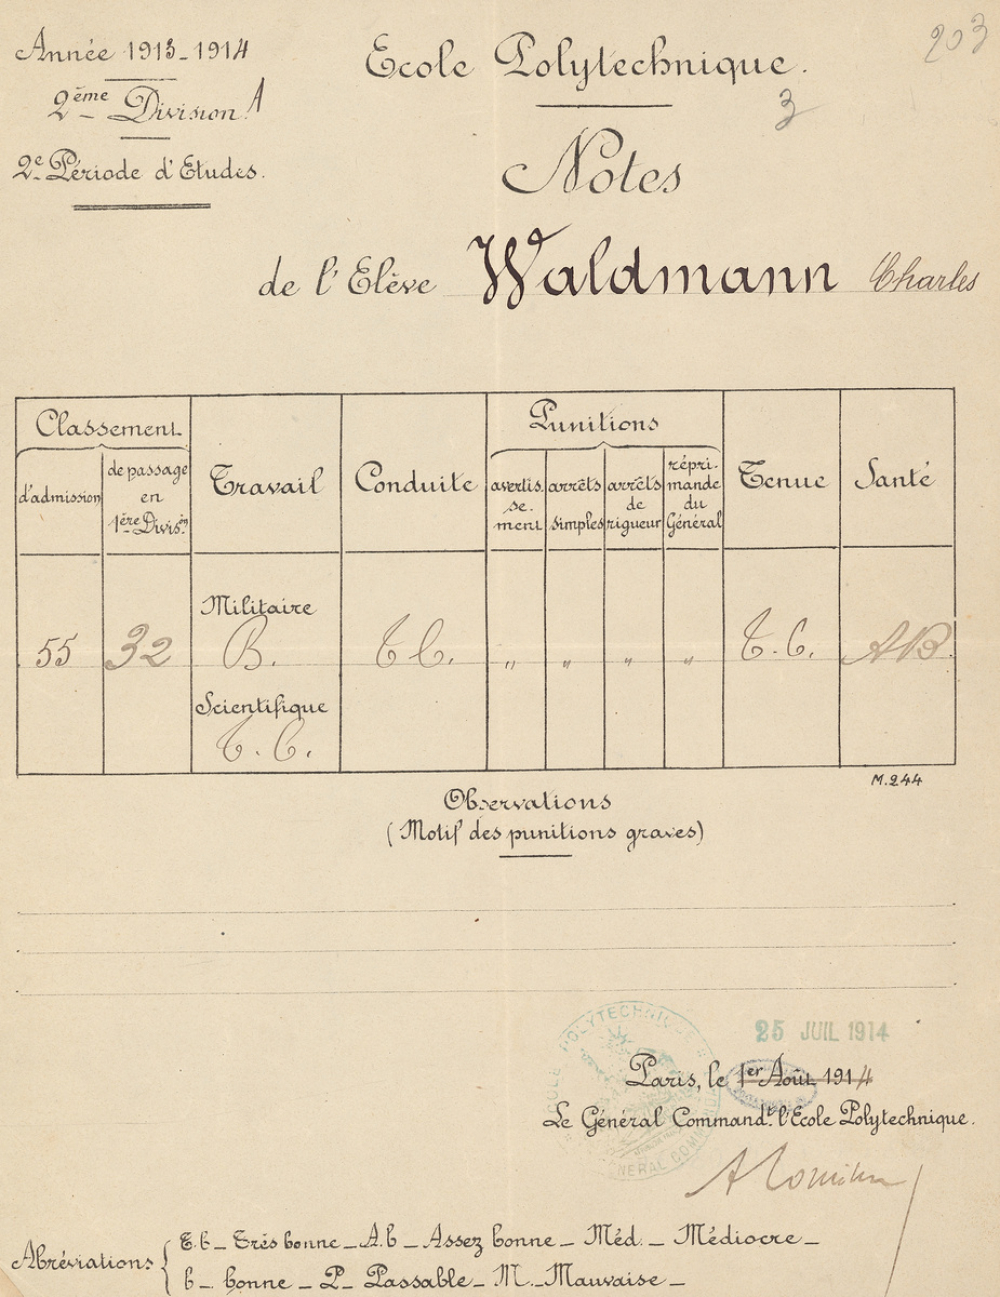 203
Année 1913-1914
Ecole Polytechnique.
2ème Division A
3
2e Période d'Etudes.
Notes
de l'Elève Waldmann Charles
Classement
d'admission
de passage en 1ère Divison
Travail
Conduite
Punitions
avertis.
se.
ment
arrêts
simples
arrêts
de
rigueur
répri-
mande
du
Général
Tenue
Santé
55
32
Militaire
B.
Scientifique
T.b.
Tb.
"
"
"
"
T.b.
AB.
M.244
Observations
(Motif des punitions graves)
25 JUIL 1914
Paris, le 1er Août 1914
Le Général Commandt. l'Ecole Polytechnique.
POLYTECHNIQUE
Abréviations { T.b - Très bonne - A.b - Assez bonne - Méd. - Médiocre -
b - bonne - P - Passable - M. - Mauvaise -